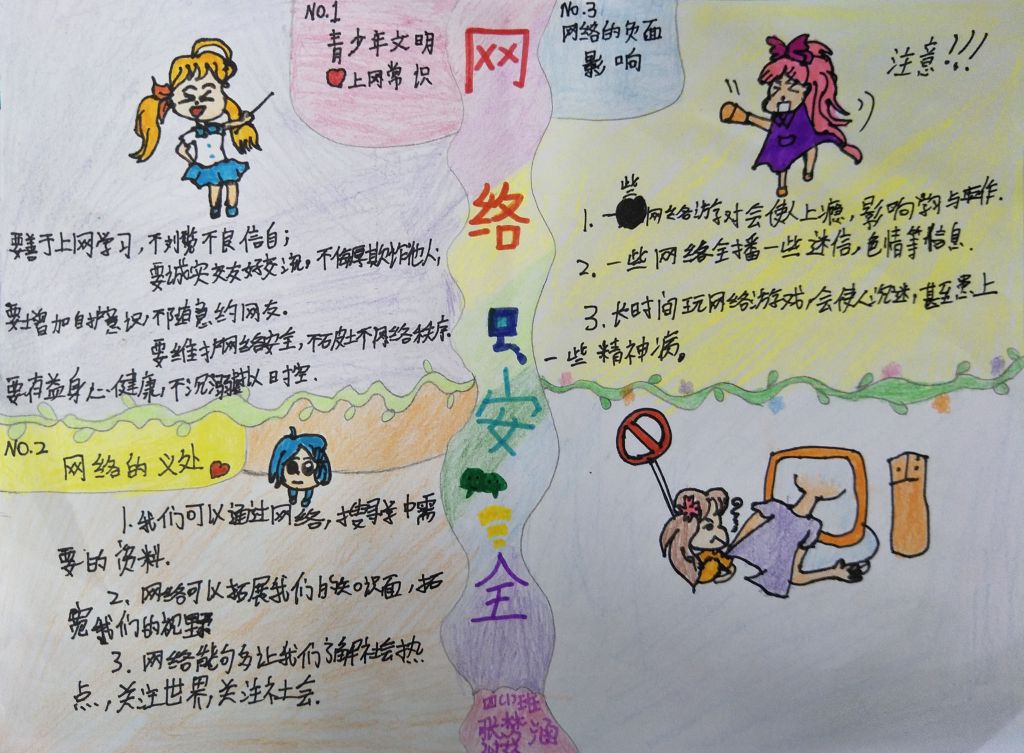 网
络
安
全
NO.1
青少年文明
上网常识
要善于上网学习,不浏览不良信自;
要诚实交友好交流,不侮辱欺诈他人;
要增加自护意识,不随意约网友.
要维护网络安全,不破坏网络秩序.
要有益身心健康,不沉溺虚拟时空.
NO.2
网络的义处
1.我们可以通过网络,搜寻学中需
要的资料.
2、网络可以拓展我们的知识面,拓
宽我们的视野
3.网络能够多让我们了解社会热
点,关注世界,关注社会.
No.3
网络的负面
影响
注意!!!
1.一些网络游戏会使人上瘾,影响学与工作.
2.一些网络会播一些迷信,色情等信息.
3.长时间玩网络游戏,会使人沉迷,甚至患上
一些精神病。
四(1)班
张梦涵